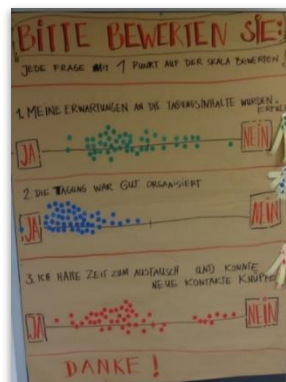 BITTE BEWERTEN SIE:
JEDE FRAGE MIT 1 PUNKT AUF DER SKALA BEWERTEN!
1. MEINE ERWARTUNGEN AN DIE TAGUNGSINHALTE WURDEN
ERFÜLLT
JA NEIN
2. DIE TAGUNG WAR GUT ORGANISIERT
JA NEIN
3. ICH HATTE ZEIT ZUM AUSTAUSCH UND KONNTE
NEUE KONTAKTE KNÜPFEN
JA NEIN
DANKE!